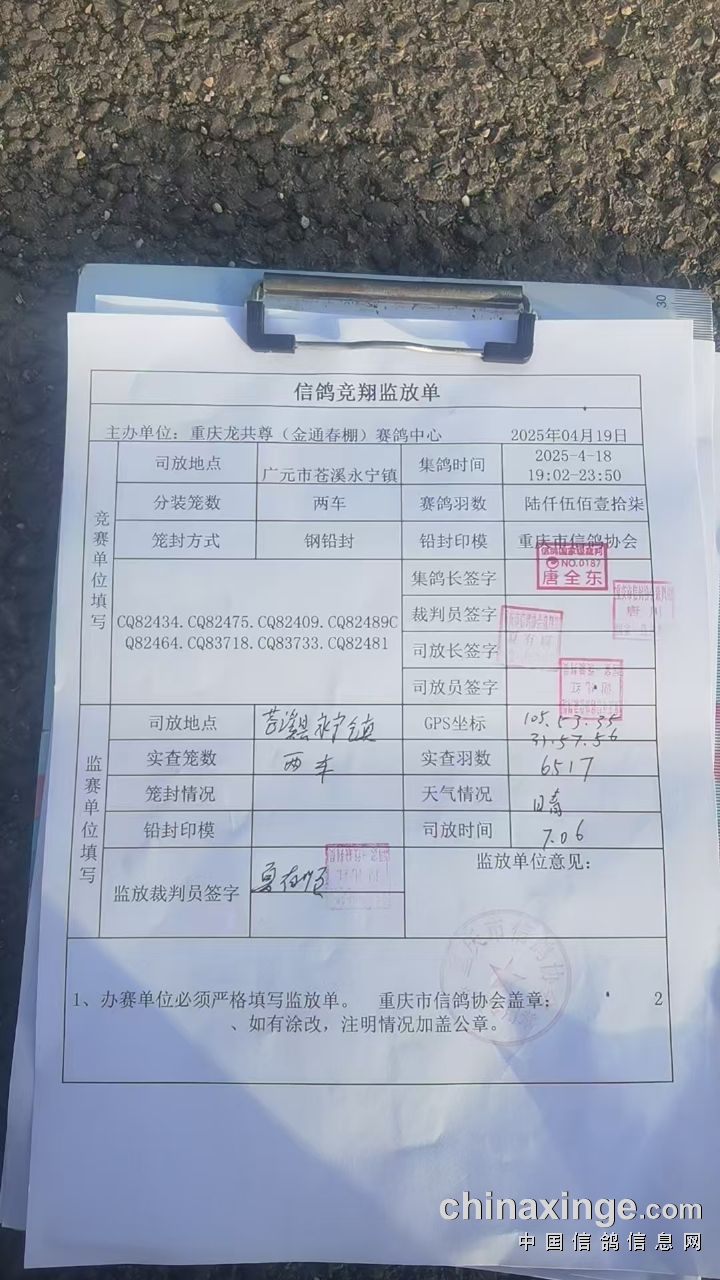 30
信鸽竞翔监放单
主办单位：重庆龙共尊（金通春棚）赛鸽中心 2025年04月19日
竞赛单位填写
司放地点 广元市苍溪永宁镇 集鸽时间 2025-4-18
19:02-23:50
分装笼数 两车 赛鸽羽数 陆仟伍佰壹拾柒
笼封方式 钢铅封 铅封印模 重庆市信鸽协会
CQ82434.CQ82475.CQ82409.CQ82489C
Q82464.CQ83718.CQ83733.CQ82481
集鸽长签字
NO.0187
唐全东
裁判员签字
司放长签字
司放员签字
监赛单位填写
司放地点 苍溪县永宁镇 GPS坐标 105.53.35
31.57.56
实查笼数 两车 实查羽数 6517
笼封情况 天气情况 日 晴
铅封印模 司放时间 7.06
监放裁判员签字
监放单位意见：
重庆市信鸽协会
1、办赛单位必须严格填写监放单。 重庆市信鸽协会盖章； 2
、如有涂改，注明情况加盖公章。
chinaxinge.com
中国信鸽信息网